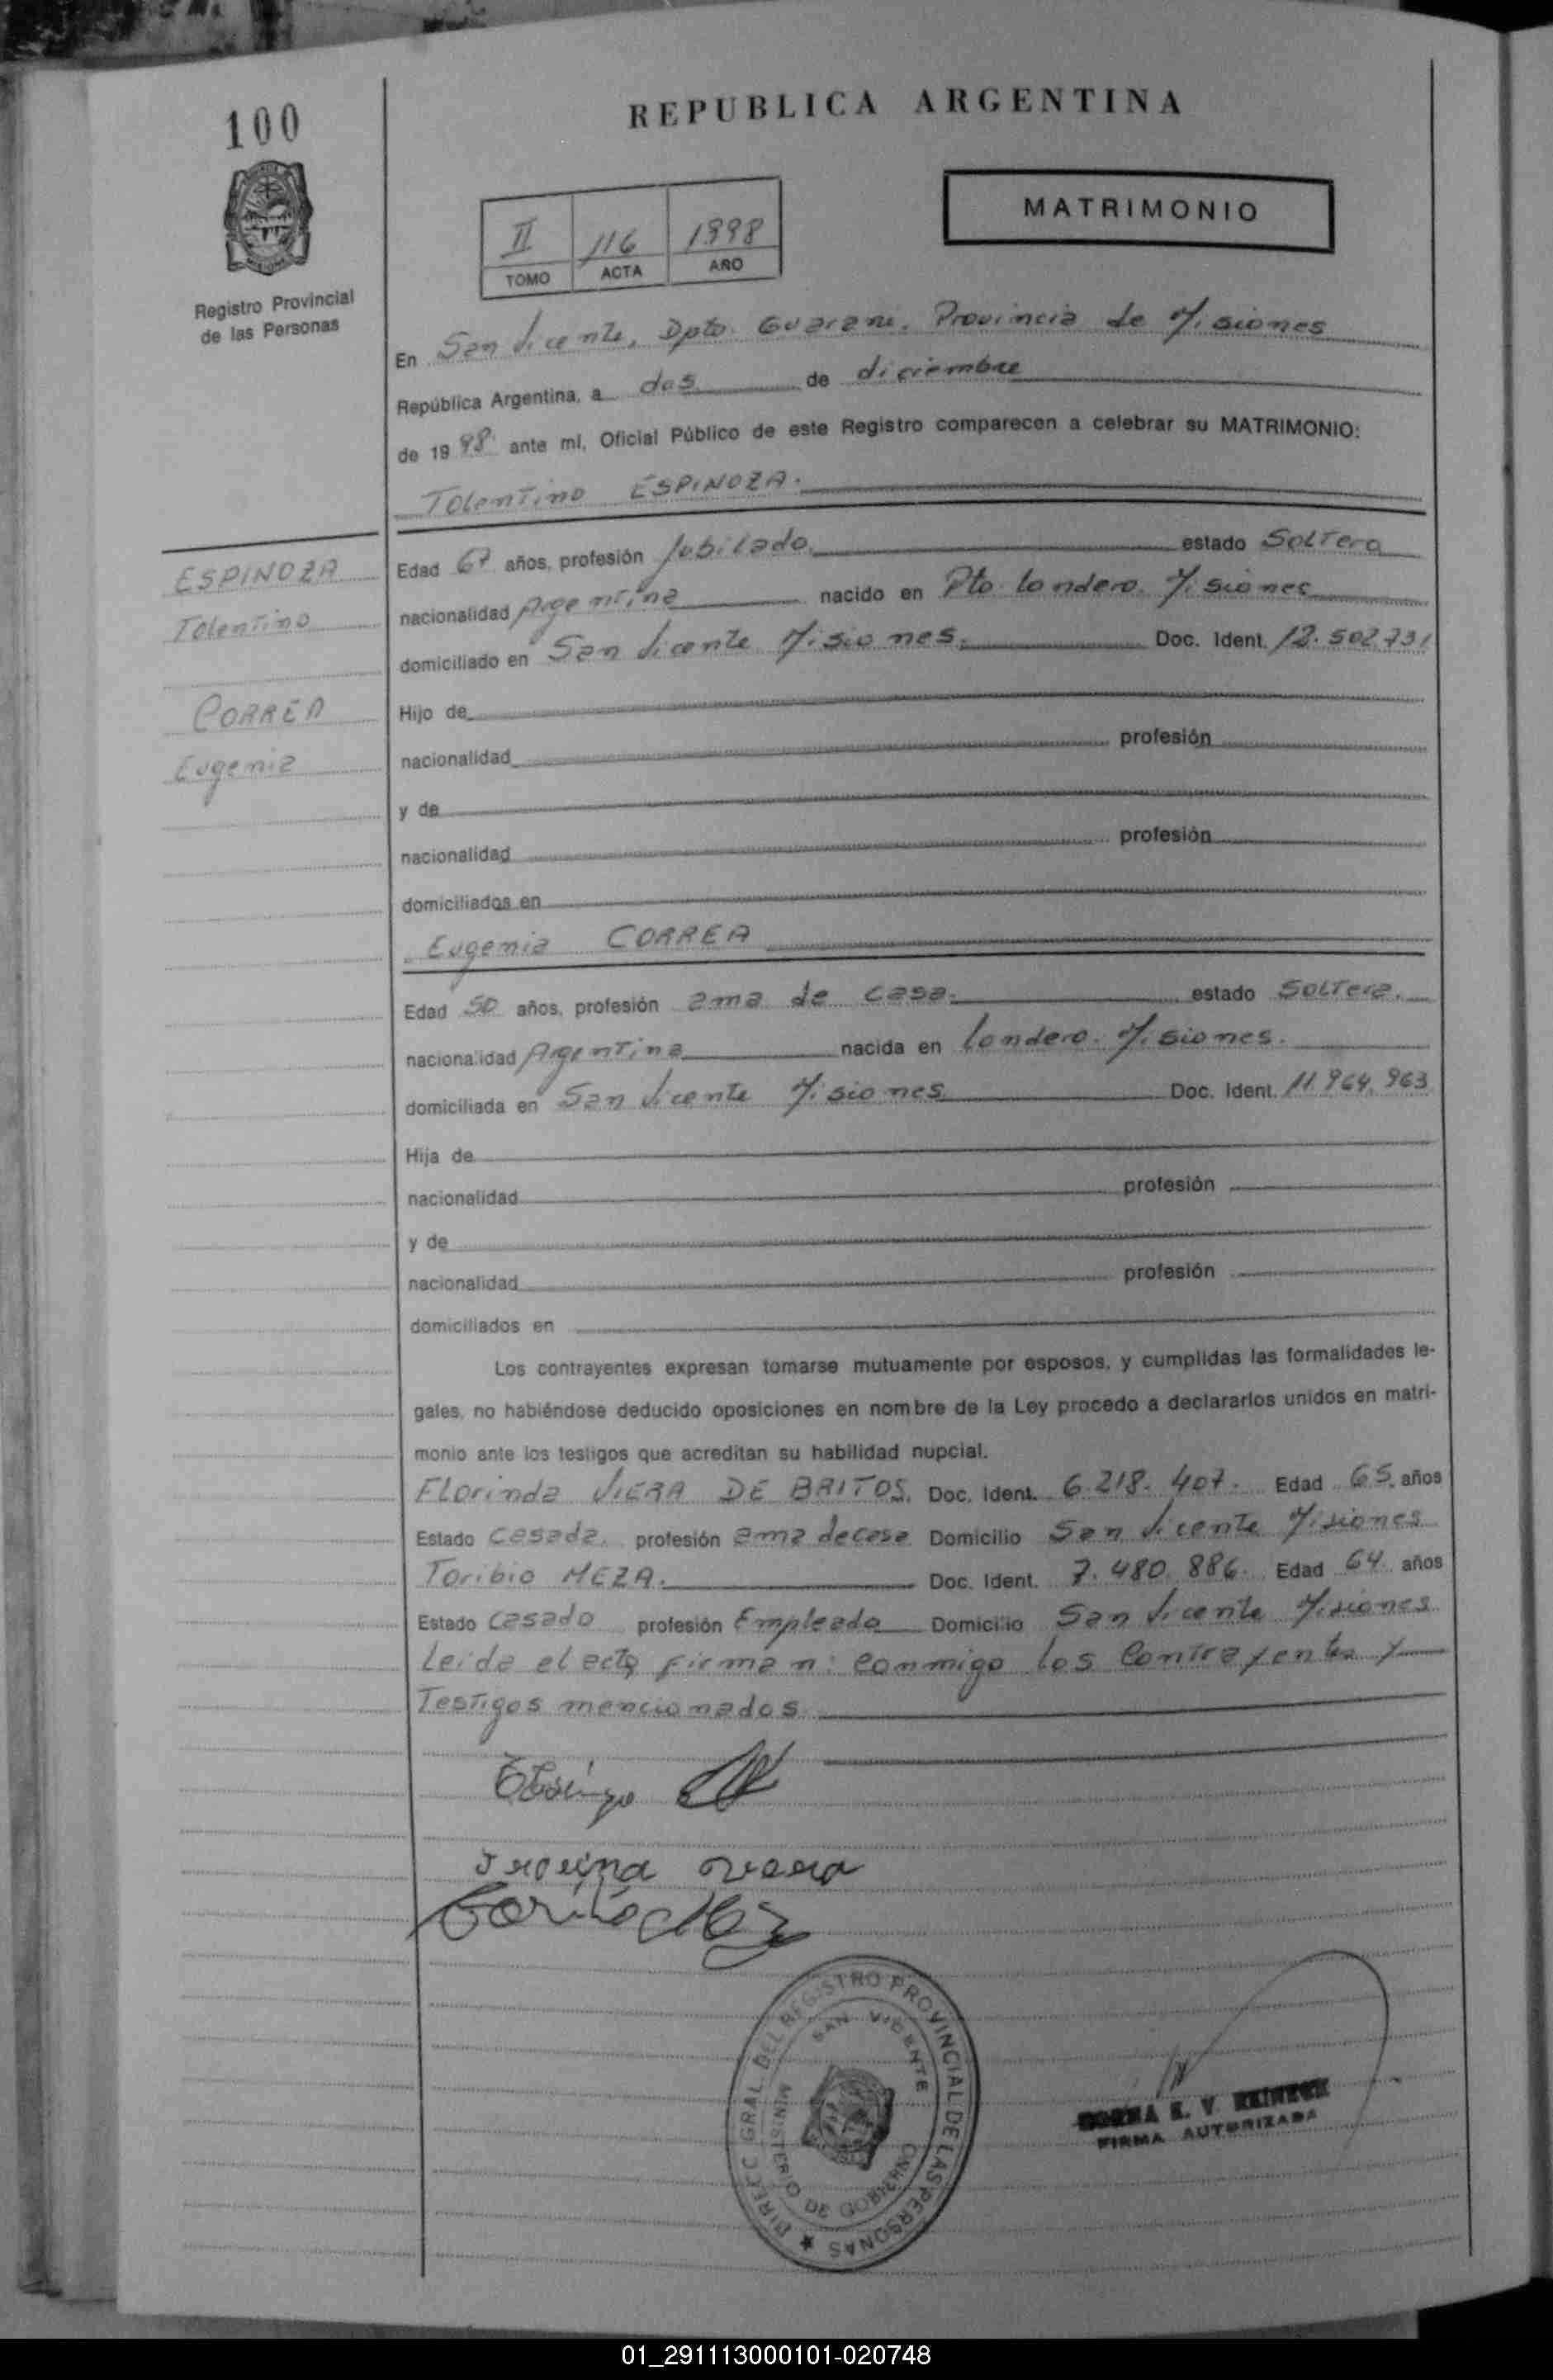 100
REPUBLICA ARGENTINA
MATRIMONIO
II 116 1998
TOMO ACTA AÑO
Registro Provincial
de las Personas
En San Vicente, Dpto. Guarani. Provincia de Misiones
República Argentina, a dos de diciembre
de 1998 ante mí, Oficial Público de este Registro comparecen a celebrar su MATRIMONIO:
Tolentino ESPINOZA.
ESPINOZA
Tolentino
CORREA
Eugenia
Edad 67 años, profesión Jubilado. estado Soltero
nacionalidad Argentina nacido en Pto Londero. Misiones
domiciliado en San Vicente Misiones. Doc. Ident. 12.502.731
Hijo de
nacionalidad profesión
y de
nacionalidad profesión
domiciliados en
Eugenia CORREA
Edad 50 años, profesión ama de casa. estado Soltera.
nacionalidad Argentina nacida en Londero. Misiones.
domiciliada en San Vicente Misiones. Doc. Ident. 11.964.963
Hija de
nacionalidad profesión
y de
nacionalidad profesión
domiciliados en
Los contrayentes expresan tomarse mutuamente por esposos, y cumplidas las formalidades le-
gales, no habiéndose deducido oposiciones en nombre de la Ley procedo a declararlos unidos en matri-
monio ante los testigos que acreditan su habilidad nupcial.
Florinda VIERA DE BRITOS. Doc. Ident. 6.218.407. Edad 65. años
Estado Casada. profesión ama de casa Domicilio San Vicente Misiones
Toribio MEZA. Doc. Ident. 7.480.886. Edad 64. años
Estado Casado profesión Empleado Domicilio San Vicente Misiones
Leida el acta firman: conmigo los Contrayentes y
Testigos mencionados
DIRECC GRAL. DEL REGISTRO PROVINCIAL DE LAS PERSONAS
SAN VICENTE
MINISTERIO DE GOBIERNO
FIRMA AUTORIZADA
01_291113000101-020748